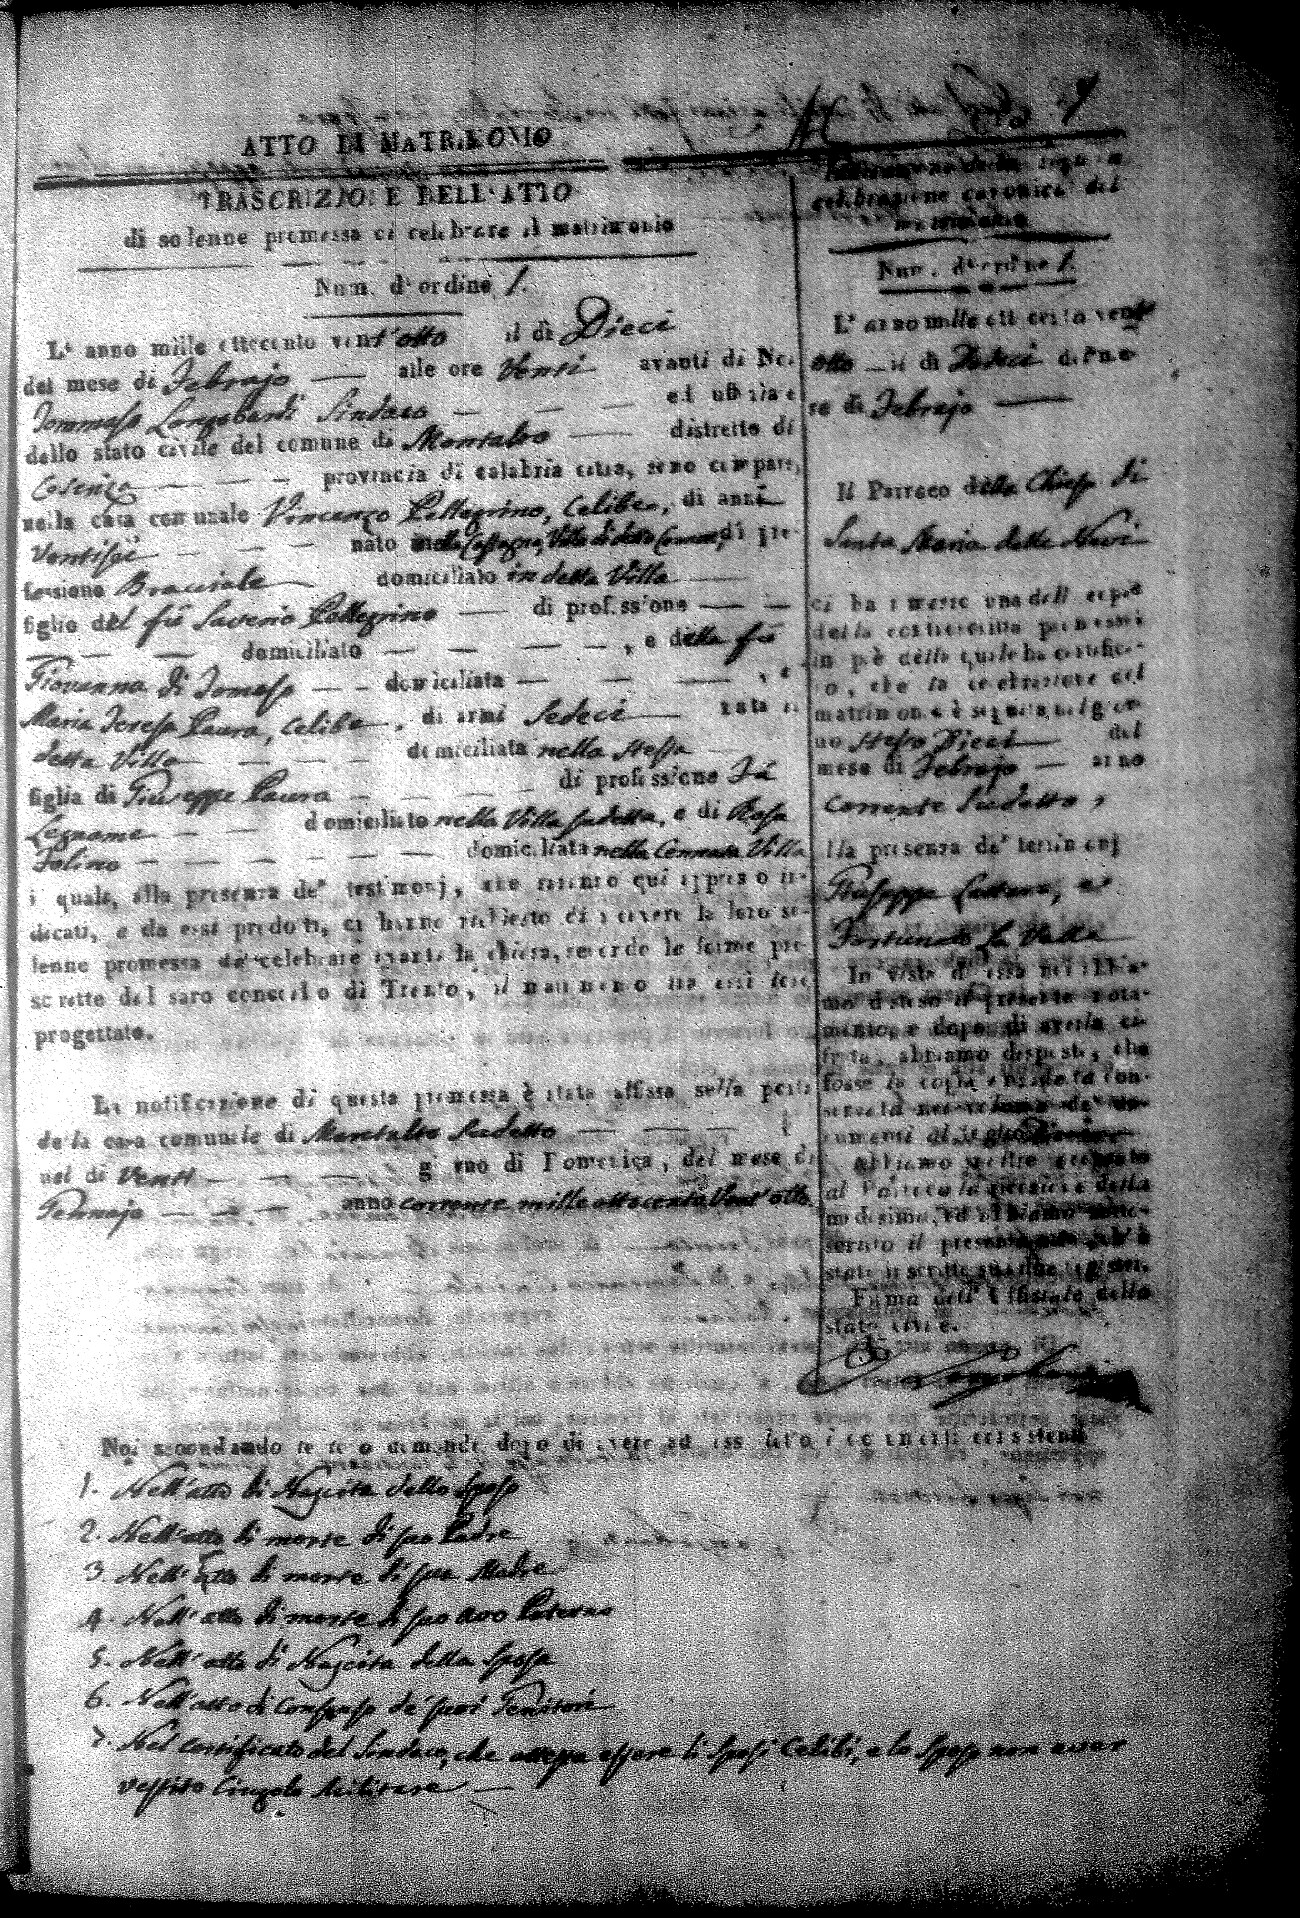 ATTO DI MATRIMONIO
TRASCRIZIONE DELL'ATTO
di solenne promessa di celebrare il matrimonio
Num. d'ordine 1.
L'anno mille ottecento vent'otto il dì Dieci
del mese di Febrajo — alle ore Venti avanti di Noi
Tommaso Longobardi Sindaco — — — ed uffiziale
dello stato civile del comune di Montalto — distretto di
Cosenza — — — provincia di calabria citra, sono compar-
nella casa comunale Vincenzo Pellegrino, Celibe, di anni
Ventisei — — — nato Villa di detto Comune, di pro-
fessione Bracciale — domiciliato in detta Villa —
figlio del fù Saverio Pellegrino — di professione — —
— — — domiciliato — — — —, e della fù
Giovanna di Tomaso — — domiciliata — — —, e
Maria Teresa Paura, Celibe —, di anni Sedeci — nata in
detta Villa — — — — domiciliata nella stessa —
figlia di Giuseppe Paura — — — — di professione Fa
Legname — — — domiciliato nella Villa sudetta, e di Rosa
Folino — — — — — — domiciliata nella Cennata Villa
i quali, alla presenza de' testimonj, che saranno quì appresso in-
dicati, e da essi prodotti, ci hanno richiesto di ricevere la loro so-
lenne promessa di celebrare avanti la chiesa, secondo le forme pre-
scritte dal sacro concilio di Trento, il matrimonio tra essi loro
progettato.
La notificazione di questa promessa è stata affissa sulla porta
della casa comunale di Montalto Sudetto — — —
nel dì Venti — — — giorno di Domenica, del mese di
Gennajo — — — anno corrente mille ottocento Vent'otto
Noi secondando le loro dimande dopo di avere
1. Nell'atto di Nascita dello Sposo
2. Nell'atto di morte di suo Padre
3. Nell'atto di morte di sua Madre
4. Nell'atto di morte di suo Avo Paterno
5. Nell'atto di Nascita della Sposa
6. Nell'atto di Consenso de' suoi Genitori
7. Nel certificato del Sindaco, che attesta essere li Sposi Celibi, e lo Sposo non aver
vestito Cingolo Militare —
celebrazione canonica del
matrimonio
Num. d'ordine 1.
L'anno mille ottocento vent'
otto — il dì Dieci del me-
se di Febrajo —
Il Parroco della Chiesa di
Santa Maria delle
ci ha rimesse una delle copie
della controscritta promessa
in piè della quale ha certifica-
to, che la celebrazione del
matrimonio è seguita nel gior-
no stesso Dieci — del
mese di Febrajo — anno
corrente Sudetto,
alla presenza de' testimonj
Giuseppe
Fortunato La Valle
In vista di essa noi abbia-
mo disteso il presente nota-
mento, e dopo di averla ci-
frata, abbiamo disposto, che
fosse la copia anzidetta con-
servata nel volume de' do-
cumenti al foglio
Abbiamo inoltre accusato
al Parroco la ricezione della
medesima, ed abbiamo sotto-
scritto il presente
stato iscritto su i due registri.
Firma dell'Uffiziale dello
stato civile.